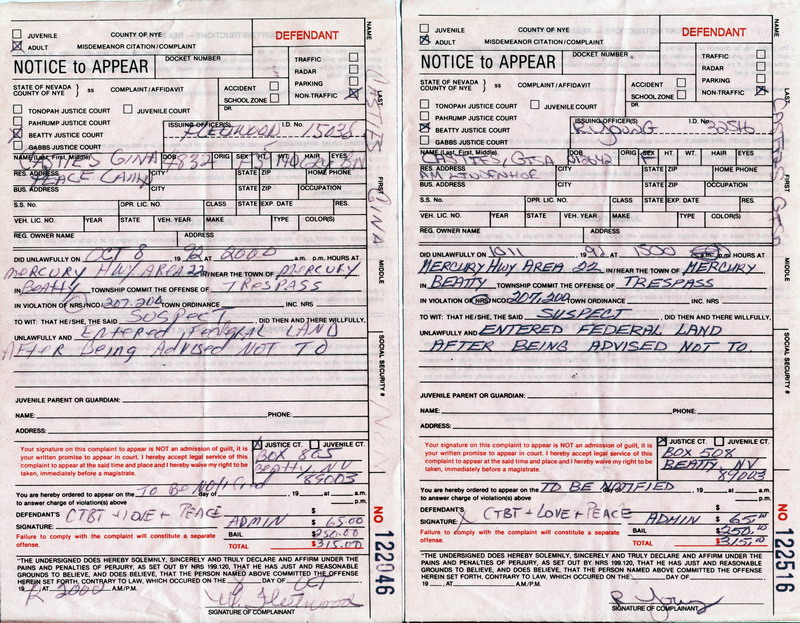 JUVENILE COUNTY OF NYE DEFENDANT
ADULT MISDEMEANOR CITATION/COMPLAINT
NOTICE to APPEAR DOCKET NUMBER
TRAFFIC
RADAR
PARKING
NON-TRAFFIC
STATE OF NEVADA } ss COMPLAINT/AFFIDAVIT
COUNTY OF NYE
ACCIDENT
SCHOOL ZONE
DR.
TONOPAH JUSTICE COURT JUVENILE COURT
PAHRUMP JUSTICE COURT
BEATTY JUSTICE COURT
GABBS JUSTICE COURT
ISSUING OFFICER(S) I.D. No.
FLEETWOOD 15036
NAME (Last, First, Middle) DOB ORIG SEX HT. WT. HAIR EYES
GINA
RES. ADDRESS CITY STATE ZIP HOME PHONE
PEACE CAMP
BUS. ADDRESS CITY STATE ZIP OCCUPATION
S.S. No. OPR. LIC. NO. STATE EXP. DATE RES.
VEH. LIC. NO. YEAR STATE VEH. YEAR MAKE TYPE COLOR(S)
REG. OWNER NAME ADDRESS
DID UNLAWFULLY ON OCT 8, 1992 at 2000 a.m. p.m. HOURS AT
MERCURY HWY AREA 22 IN/NEAR THE TOWN OF MERCURY
IN BEATTY TOWNSHIP COMMIT THE OFFENSE OF TRESPASS
IN VIOLATION OF NRS/NCO 207.200 TOWN ORDINANCE INC. NRS
TO WIT: THAT HE/SHE, THE SAID SUSPECT, DID THEN AND THERE WILLFULLY,
UNLAWFULLY AND Entered Federal LAND
AFter Being Advised NOT TO
JUVENILE PARENT OR GUARDIAN:
NAME: PHONE:
ADDRESS:
Your signature on this complaint to appear is NOT an admission of guilt, it is
your written promise to appear in court. I hereby accept legal service of this
complaint to appear at the said time and place and I hereby waive my right to be
taken, immediately before a magistrate.
JUSTICE CT. JUVENILE CT.
BOX 805
Beatty NV
89003
You are hereby ordered to appear on the TO Be Notified day of , 19 , at a.m.
to answer charge of violation(s) above p.m.
DEFENDANT'S
SIGNATURE: CTBT + LOVE + PEACE
$
ADMIN $ 65.00
BAIL $250.00
TOTAL $315.00
Failure to comply with the command will constitute a separate
offense.
"THE UNDERSIGNED DOES HEREBY SOLEMNLY, SINCERELY AND TRULY DECLARE AND AFFIRM UNDER THE
PAINS AND PENALTIES OF PERJURY, AS SET OUT BY NRS 199.120, THAT HE HAS JUST AND REASONABLE
GROUNDS TO BELIEVE, AND DOES BELIEVE, THAT THE PERSON NAMED ABOVE COMMITTED THE OFFENSE
HEREIN SET FORTH, CONTRARY TO LAW, WHICH OCCURED ON THE 8 DAY OF Oct
19 , AT 2000 A.M./P.M.
SIGNATURE OF COMPLAINANT
NAME LAST FIRST MIDDLE SOCIAL SECURITY #
GINA
NO 122046
JUVENILE COUNTY OF NYE DEFENDANT
ADULT MISDEMEANOR CITATION/COMPLAINT
NOTICE to APPEAR DOCKET NUMBER
TRAFFIC
RADAR
PARKING
NON-TRAFFIC
STATE OF NEVADA } ss COMPLAINT/AFFIDAVIT
COUNTY OF NYE
ACCIDENT
SCHOOL ZONE
DR.
TONOPAH JUSTICE COURT JUVENILE COURT
PAHRUMP JUSTICE COURT
BEATTY JUSTICE COURT
GABBS JUSTICE COURT
ISSUING OFFICER(S) I.D. No.
R. YOUNG
NAME (Last, First, Middle) DOB ORIG SEX HT. WT. HAIR EYES
F
RES. ADDRESS CITY STATE ZIP HOME PHONE
AM LINDENHOF
BUS. ADDRESS CITY STATE ZIP OCCUPATION
S.S. No. OPR. LIC. NO. STATE EXP. DATE RES.
VEH. LIC. NO. YEAR STATE VEH. YEAR MAKE TYPE COLOR(S)
REG. OWNER NAME ADDRESS
DID UNLAWFULLY ON 10/11, 1992 at 1500 a.m. p.m. HOURS AT
MERCURY HWY AREA 22 IN/NEAR THE TOWN OF MERCURY
IN BEATTY TOWNSHIP COMMIT THE OFFENSE OF TRESPASS
IN VIOLATION OF NRS/NCO 207.200 TOWN ORDINANCE INC. NRS
TO WIT: THAT HE/SHE, THE SAID SUSPECT, DID THEN AND THERE WILLFULLY,
UNLAWFULLY AND ENTERED FEDERAL LAND
AFTER BEING ADVISED NOT TO.
JUVENILE PARENT OR GUARDIAN:
NAME: PHONE:
ADDRESS:
Your signature on this complaint to appear is NOT an admission of guilt, it is
your written promise to appear in court. I hereby accept legal service of this
complaint to appear at the said time and place and I hereby waive my right to be
taken, immediately before a magistrate.
JUSTICE CT. JUVENILE CT.
BOX 508
BEATTY, NV
89003
You are hereby ordered to appear on the TO BE NOTIFIED day of , 19 , at a.m.
to answer charge of violation(s) above p.m.
DEFENDANT'S
SIGNATURE: X CTBT + LOVE + PEACE
$
ADMIN $ 65.00
BAIL $250.00
TOTAL $315.00
Failure to comply with the command will constitute a separate
offense.
"THE UNDERSIGNED DOES HEREBY SOLEMNLY, SINCERELY AND TRULY DECLARE AND AFFIRM UNDER THE
PAINS AND PENALTIES OF PERJURY, AS SET OUT BY NRS 199.120, THAT HE HAS JUST AND REASONABLE
GROUNDS TO BELIEVE, AND DOES BELIEVE, THAT THE PERSON NAMED ABOVE COMMITTED THE OFFENSE
HEREIN SET FORTH, CONTRARY TO LAW, WHICH OCCURED ON THE DAY OF
19 , AT A.M./P.M.
R Young
SIGNATURE OF COMPLAINANT
NAME LAST FIRST MIDDLE SOCIAL SECURITY #
NO 122516